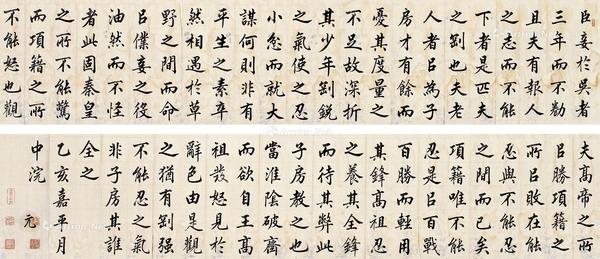 臣妾於吳者
三年而不勌
且夫有報人
之志而不能
下者是匹夫
之剛也夫老
人者㠯為子
房才有餘而
憂其度量之
不足故深折
其少年剛銳
之氣使之忍
小忿而就大
謀何則非有
平生之素卒
然相遇於草
野之間而命
㠯僕妾之役
油然而不怪
者此固秦皇
之所不能驚
而項籍之所
不能怒也觀
夫高帝之所
㠯勝項籍之
所㠯敗在能
忍與不能忍
之間而已矣
項籍唯不能
忍是㠯百戰
百勝而輕用
其鋒高祖忍
之養其全鋒
而待其弊此
子房教之也
當淮陰破齊
而欲自王高
祖發怒見於
辭色由是觀
之猶有剛强
不能忍之氣
非子房其誰
全之
乙亥嘉平月
中浣
元